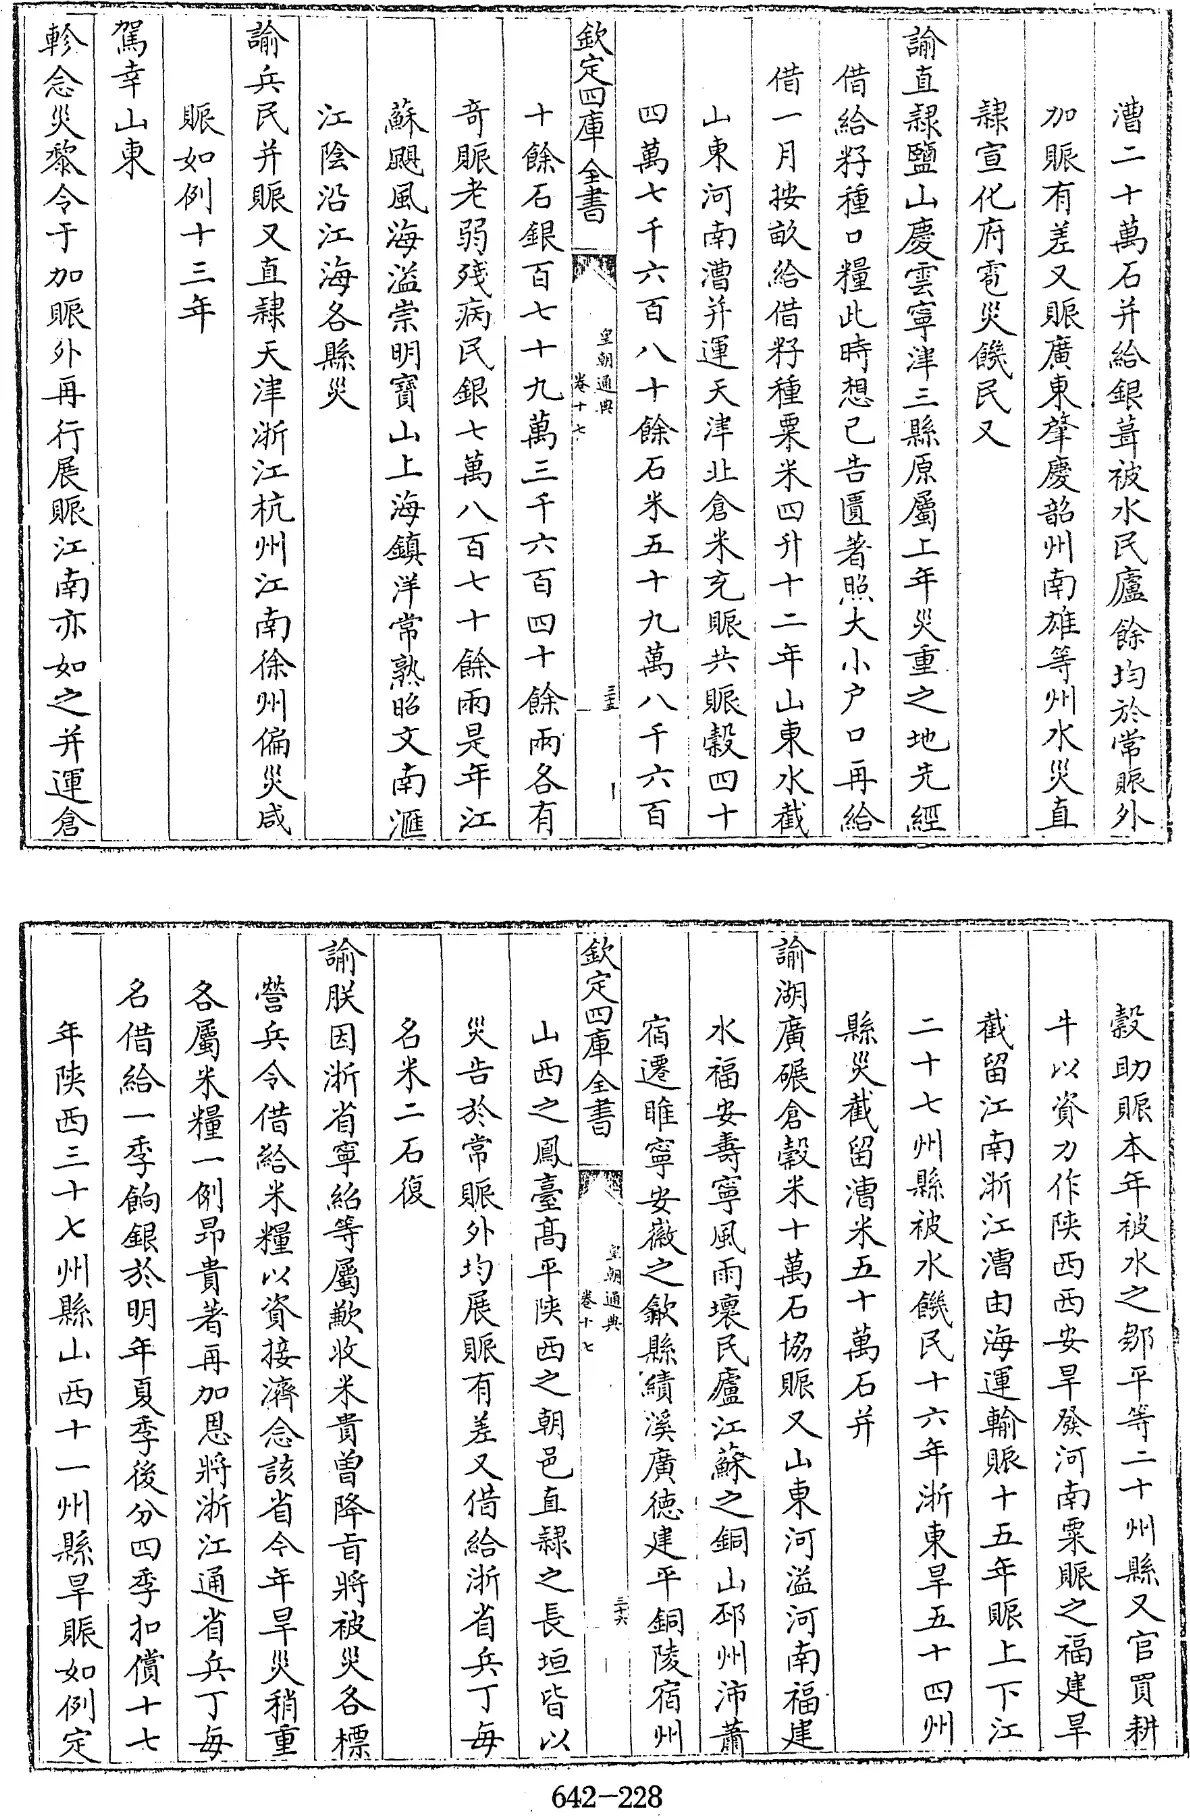 漕二十萬石并給銀葺被水民廬餘均於常賑外
加賑有差又賑廣東肇慶韶州南雄等州水災直
隸宣化府雹災饑民又
諭直隸鹽山慶雲寧津三縣原屬上年災重之地先經
借給籽種口糧此時想已告匱著照大小户口再給
借一月按畝給借籽種粟米四升十二年山東水截
山東河南漕并運天津北倉米充賑共賑穀四十
四萬七千六百八十餘石米五十九萬八千六百
欽定四庫全書
皇朝通典
卷十七
三十五
十餘石銀百七十九萬三千六百四十餘兩各有
奇賑老弱殘病民銀七萬八百七十餘兩是年江
蘇颶風海溢崇明寶山上海鎮洋常熟昭文南滙
江陰沿江海各縣災
諭兵民并賑又直隸天津浙江杭州江南徐州偏災咸
賑如例十三年
駕幸山東
軫念災黎令于加賑外再行展賑江南亦如之并運倉
穀助賑本年被水之鄒平等二十州縣又官買耕
牛以資力作陝西西安旱發河南粟賑之福建旱
截留江南浙江漕由海運輸賑十五年賑上下江
二十七州縣被水饑民十六年浙東旱五十四州
縣災截留漕米五十萬石并
諭湖廣碾倉穀米十萬石協賑又山東河溢河南福建
水福安壽寧風雨壞民廬江蘇之銅山邳州沛蕭
宿遷睢寧安徽之歙縣績溪廣德建平銅陵宿州
欽定四庫全書
皇朝通典
卷十七
三十六
山西之鳳臺高平陝西之朝邑直隸之長垣皆以
災告於常賑外均展賑有差又借給浙省兵丁每
名米二石復
諭朕因浙省寧紹等屬歉收米貴曾降旨將被災各標
營兵令借給米糧以資接濟念該省今年旱災稍重
各屬米糧一例昂貴著再加恩將浙江通省兵丁每
名借給一季餉銀於明年夏季後分四季扣償十七
年陝西三十七州縣山西十一州縣旱賑如例定
642-228